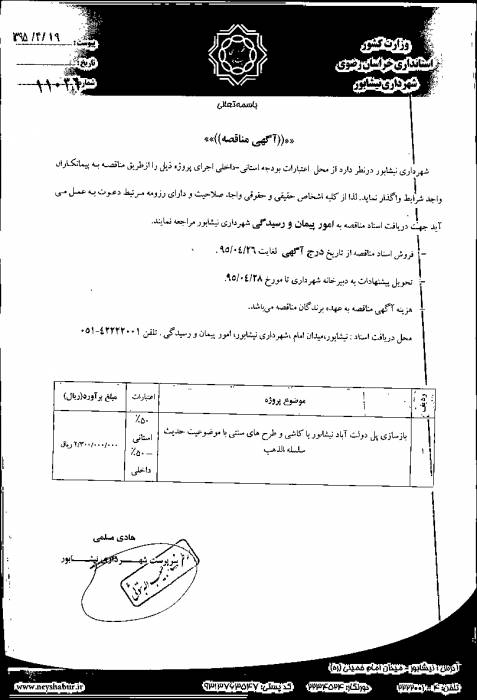 وزارت کشور
استانداری خراسان رضوی
شهرداری نیشابور
پیوست :
۱۳۹۵/۴/۱۹
تاریخ :
شماره
باسمه تعالی
««((آگهی مناقصه))»»
شهرداری نیشابور درنظر دارد از محل اعتبارات بودجه استانی-داخلی اجرای پروژه ذیل را ازطریق مناقصه به پیمانکاران
واجد شرایط واگذار نماید. لذا از کلیه اشخاص حقیقی و حقوقی واجد صلاحیت و دارای رزومه مرتبط دعوت به عمل می
آید جهت دریافت اسناد مناقصه به امور پیمان و رسیدگی شهرداری نیشابور مراجعه نمایند.
– فروش اسناد مناقصه از تاریخ درج آگهی لغایت ۹۵/۰۴/۲۶ .
– تحویل پیشنهادات به دبیرخانه شهرداری تا مورخ ۹۵/۰۴/۲۸.
– هزینه آگهی مناقصه به عهده برندگان مناقصه می‌باشد.
محل دریافت اسناد : نیشابور،میدان امام ،شهرداری نیشابور، امور پیمان و رسیدگی . تلفن ۴۲۲۲۲۰۰۱-۰۵۱
ردیف موضوع پروژه اعتبارات مبلغ برآورد(ریال)
۱ بازسازی پل دولت آباد نیشابور با کاشی و طرح های سنتی با موضوعیت حدیث سلسله الذهب ۵۰٪ استانی – ۵۰٪ داخلی ۲/۳۰۰/۰۰۰/۰۰۰ ریال
هادی سلمی
سرپرست شهرداری نیشابور
آدرس : نیشابور - میدان امام خمینی (ره)
www.neyshabur.ir